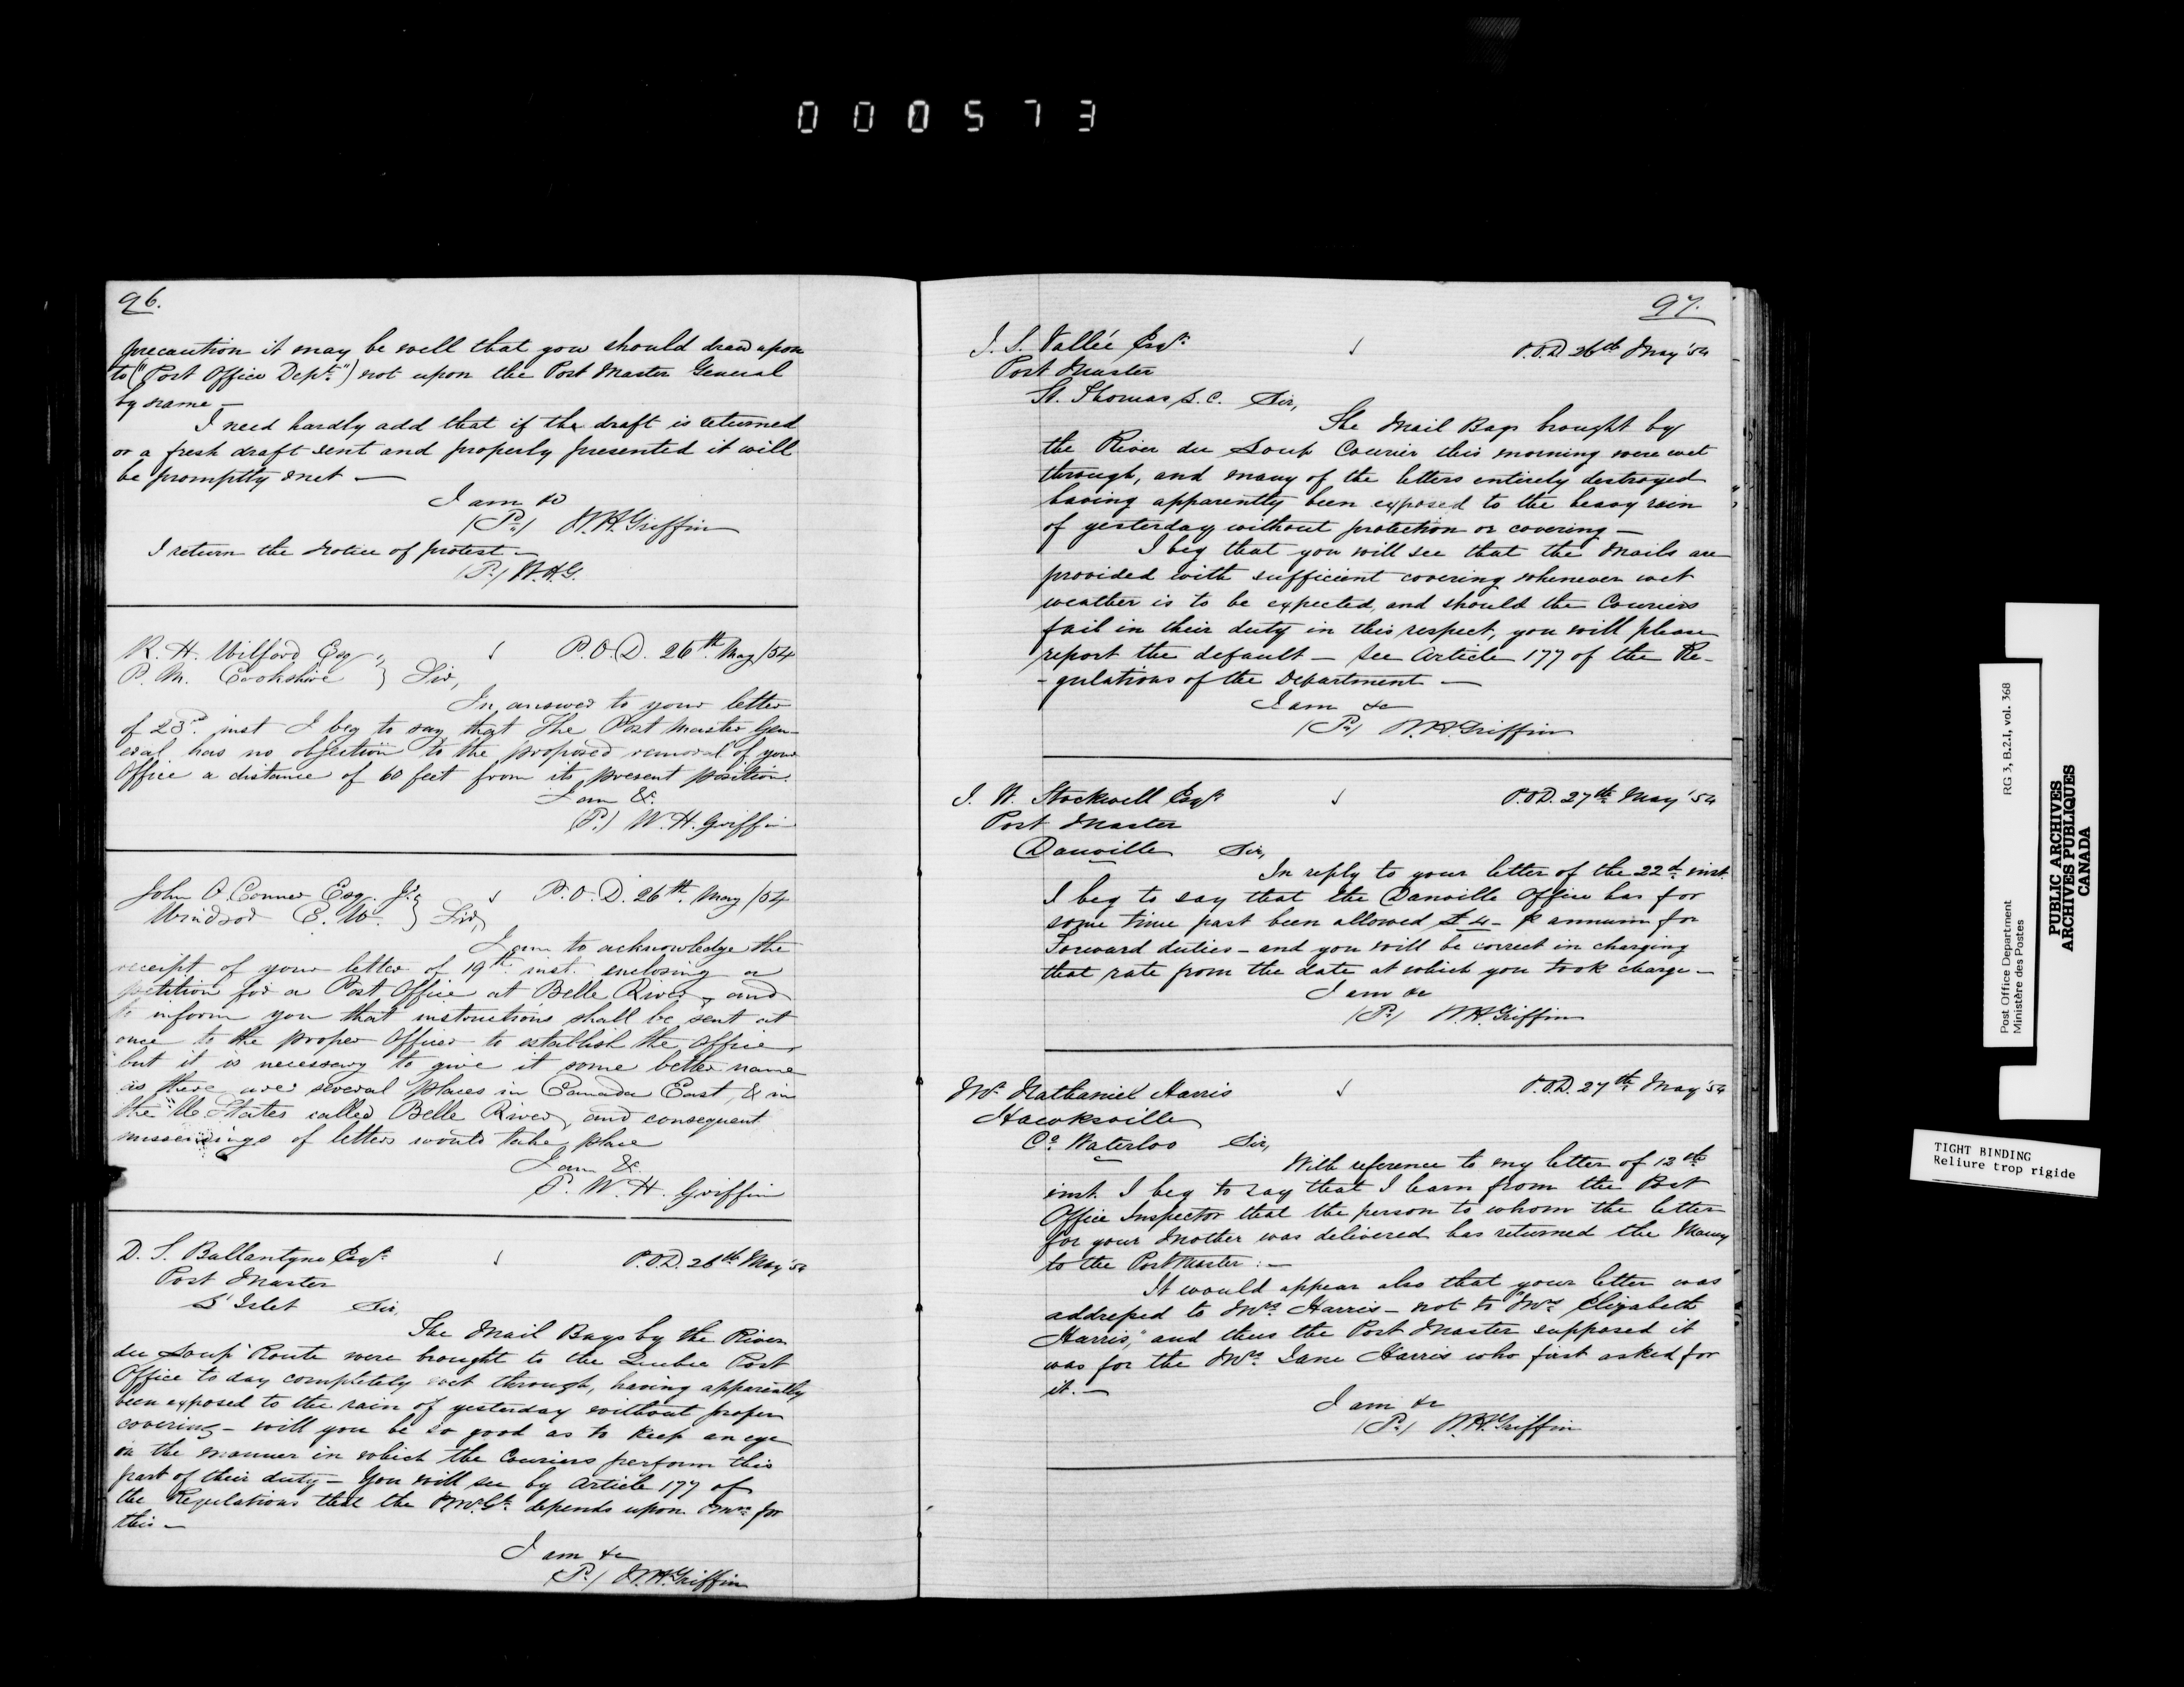 000573
96.
precaution it may be well that you should draw upon
to ("Post Office Dept.") not upon the Post Master General
by name —
I need hardly add that if the draft is returned
or a fresh draft sent and properly presented it will
be promptly met —
I am &c
(Pr) W.H. Griffin
I return the notice of protest —
(Pr) W.H.G.
R. H. Wilford Esq
P. M. Cookshire } Sir,
P.O.D. 26th May /54
In answer to your letter
of 23rd inst I beg to say that The Post Master Gen-
eral has no objection to the proposed removal of your
Office a distance of 60 feet from its present position.
I am &c.
(P.) W. H. Griffin
John O'Connor Esq. Jr.
Windsor C. W. } Sir,
P.O.D. 26th. May /54
I am to acknowledge the
receipt of your letter of 19th inst. enclosing a
petition for a Post Office at Belle River, and
to inform you that instructions shall be sent at
once to the proper Officer to establish the office,
but it is necessary to give it some better name
as there are several places in Canada East, & in
the U. States called Belle River, and consequent
missendings of letters would take place
I am &c.
P. W. H. Griffin
D. S. Ballantyne Esqr.
Post Master
L'Islet Sir,
P.O.D. 26th May '54
The Mail Bags by the River
du Loup Route were brought to the Quebec Post
Office to day completely wet through, having apparently
been exposed to the rain of yesterday without proper
covering — will you be so good as to keep an eye
on the manner in which the Couriers perform this
part of their duty — You will see by Article 177 of
the Regulations that the P.M.Gl. depends upon P.Mrs for
this —
I am &c
(Pr) W.H. Griffin
97.
J. S. Vallée Esqr.
P.O.D 26th May '54
Post Master
St. Thomas L.C. Sir,
The Mail Bags brought by
the River du Loup Courier this morning were wet
through, and many of the letters entirely destroyed
having apparently been exposed to the heavy rain
of yesterday without protection or covering —
I beg that you will see that the Mails are
provided with sufficient covering whenever wet
weather is to be expected, and should the Couriers
fail in their duty in this respect, you will please
report the default — See Article 177 of the Re-
-gulations of the Department —
I am &c
(Pr) W.H. Griffin
J. W. Stockwell Esqr
P.O.D. 27th May '54
Post Master
Danville Sir,
In reply to your letter of the 22d. inst.
I beg to say that the Danville Office has for
some time past been allowed £4 - p annum for
Forward duties — and you will be correct in charging
that rate from the date at which you took charge —
I am &c
(Pr) W.H. Griffin
Mr. Nathaniel Harris
P.O.D. 27th May '54
Hawksville
Co. Waterloo Sir,
With reference to my letter of 12th
inst. I beg to say that I learn from the Post
Office Inspector that the person to whom the letter
for your Mother was delivered has returned the Money
to the Post Master : —
It would appear also that your letter was
addressed to Mrs. Harris — not to "Mrs. Elizabeth
Harris," and thus the Post Master supposed it
was for the Mrs. Jane Harris who first asked for
it. —
I am &c
(Pr) W.H. Griffin
Post Office Department RG 3, B.2.I, vol. 368
Ministère des Postes
PUBLIC ARCHIVES
ARCHIVES PUBLIQUES
CANADA
TIGHT BINDING
Reliure trop rigide